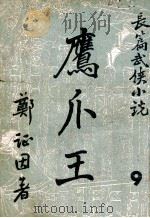 長篇武俠小說
鷹爪王
鄭証因著
9